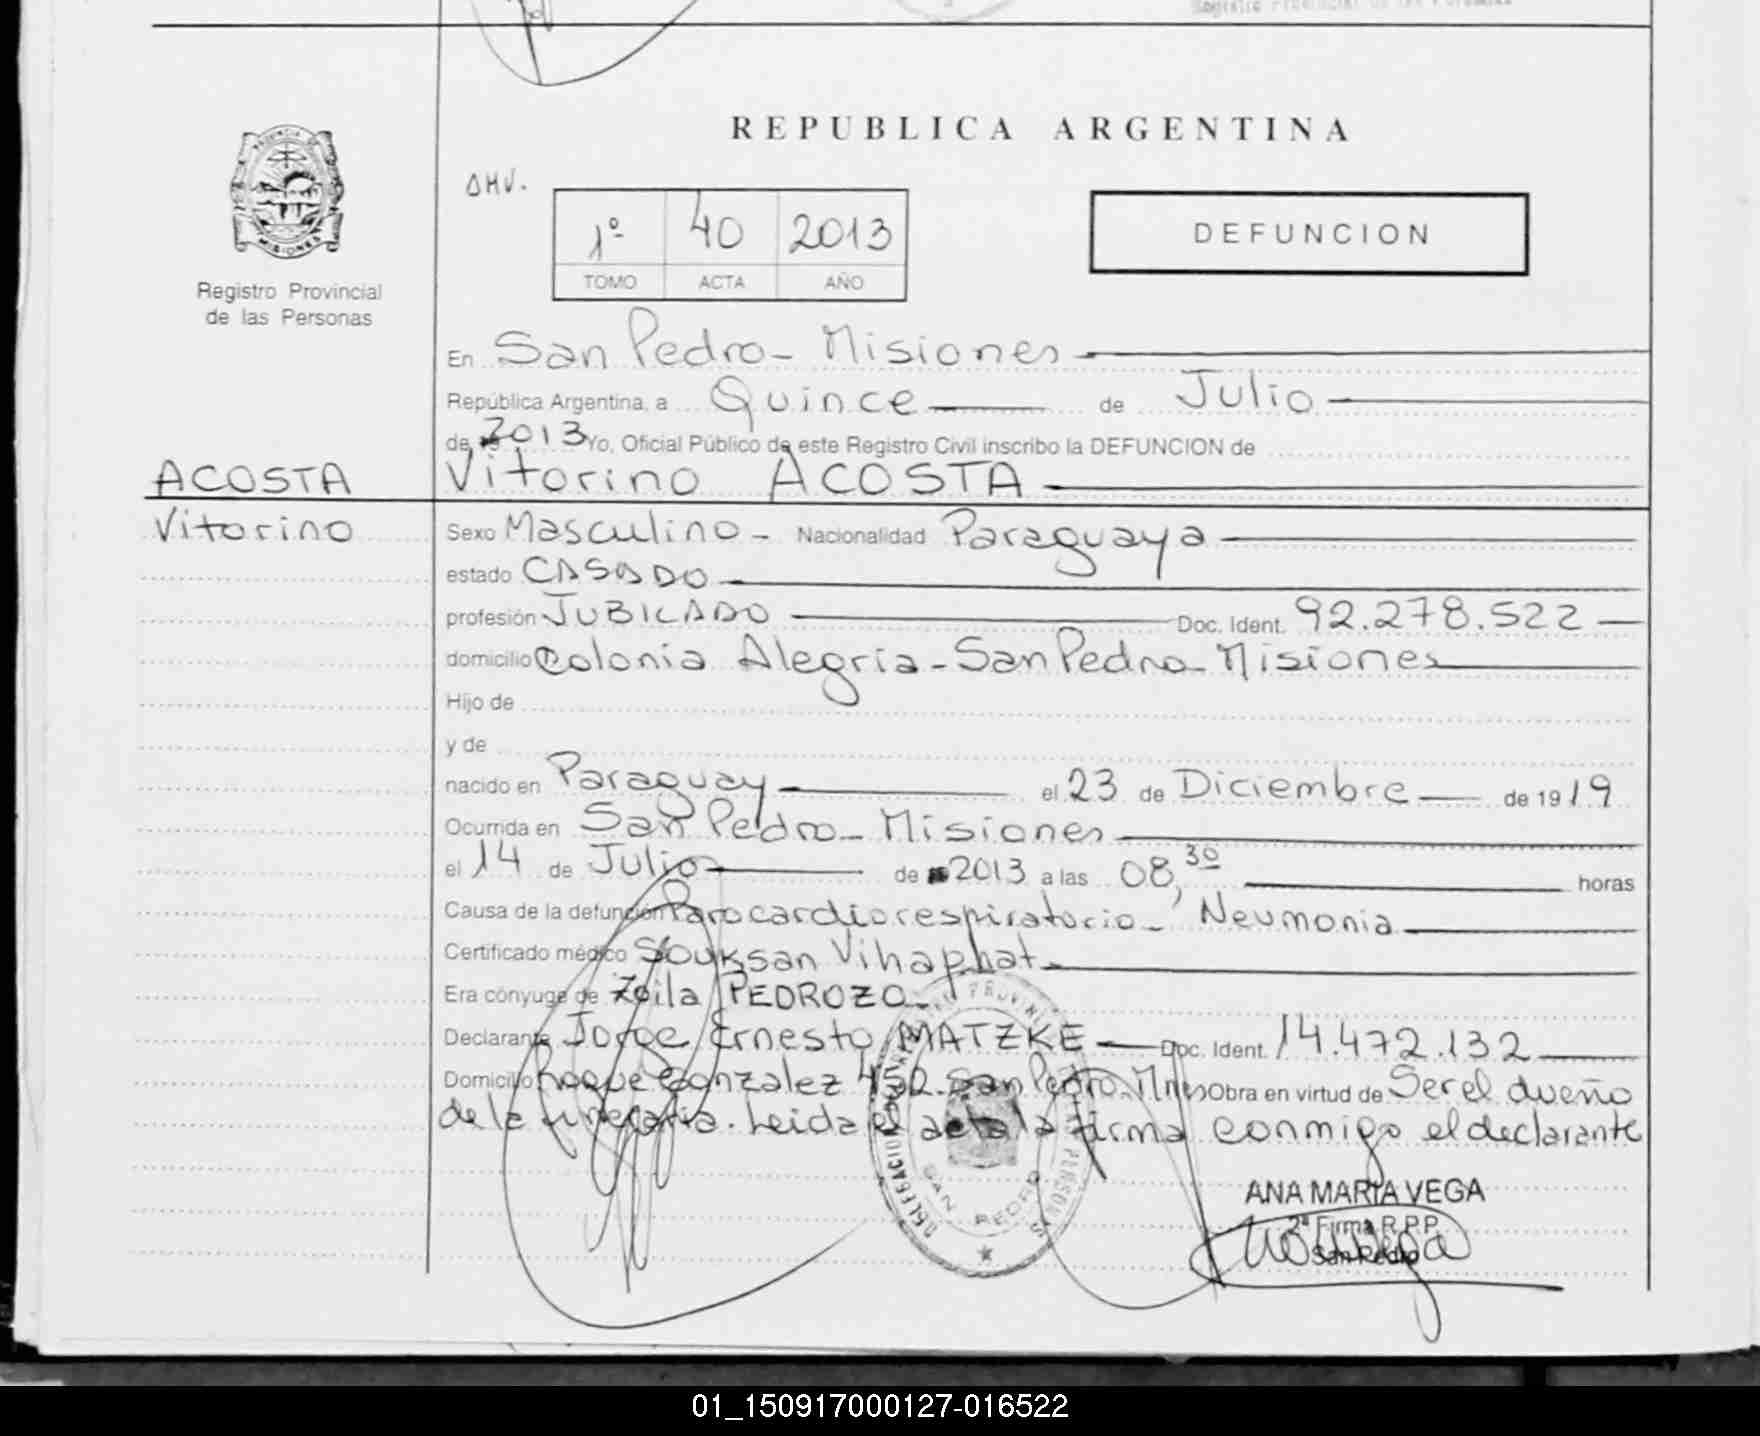 REPUBLICA ARGENTINA
PROVINCIA
MISIONES
Registro Provincial
de las Personas
AMV.
1º 40 2013
TOMO ACTA AÑO
DEFUNCION
En San Pedro - Misiones
República Argentina, a Quince de Julio
de 2013 Yo, Oficial Público de este Registro Civil inscribo la DEFUNCION de
ACOSTA Vitorino ACOSTA
Vitorino Sexo Masculino - Nacionalidad Paraguaya
estado CASADO
profesión JUBILADO Doc. Ident. 92.278.522
domicilio Colonia Alegria - San Pedro - Misiones
Hijo de
y de
nacido en Paraguay el 23 de Diciembre de 1919
Ocurrida en San Pedro - Misiones
el 14 de Julio de 2013 a las 08,30 horas
Causa de la defunción Paro cardiorespiratorio - Neumonia
Certificado médico Souksan Vihaphat
Era cónyuge de Zoila PEDROZO
Declarante Jorge Ernesto MATZKE Doc. Ident. 14.472.132
Domicilio Roque Gonzalez San Pedro - Mnes Obra en virtud de Ser el dueño
de la funeraria. Leida el acta la firma conmigo el declarante
DELEGACION
SAN PEDRO
ANA MARIA VEGA
2ª Firma R.P.P.
San Pedro
01_150917000127-016522